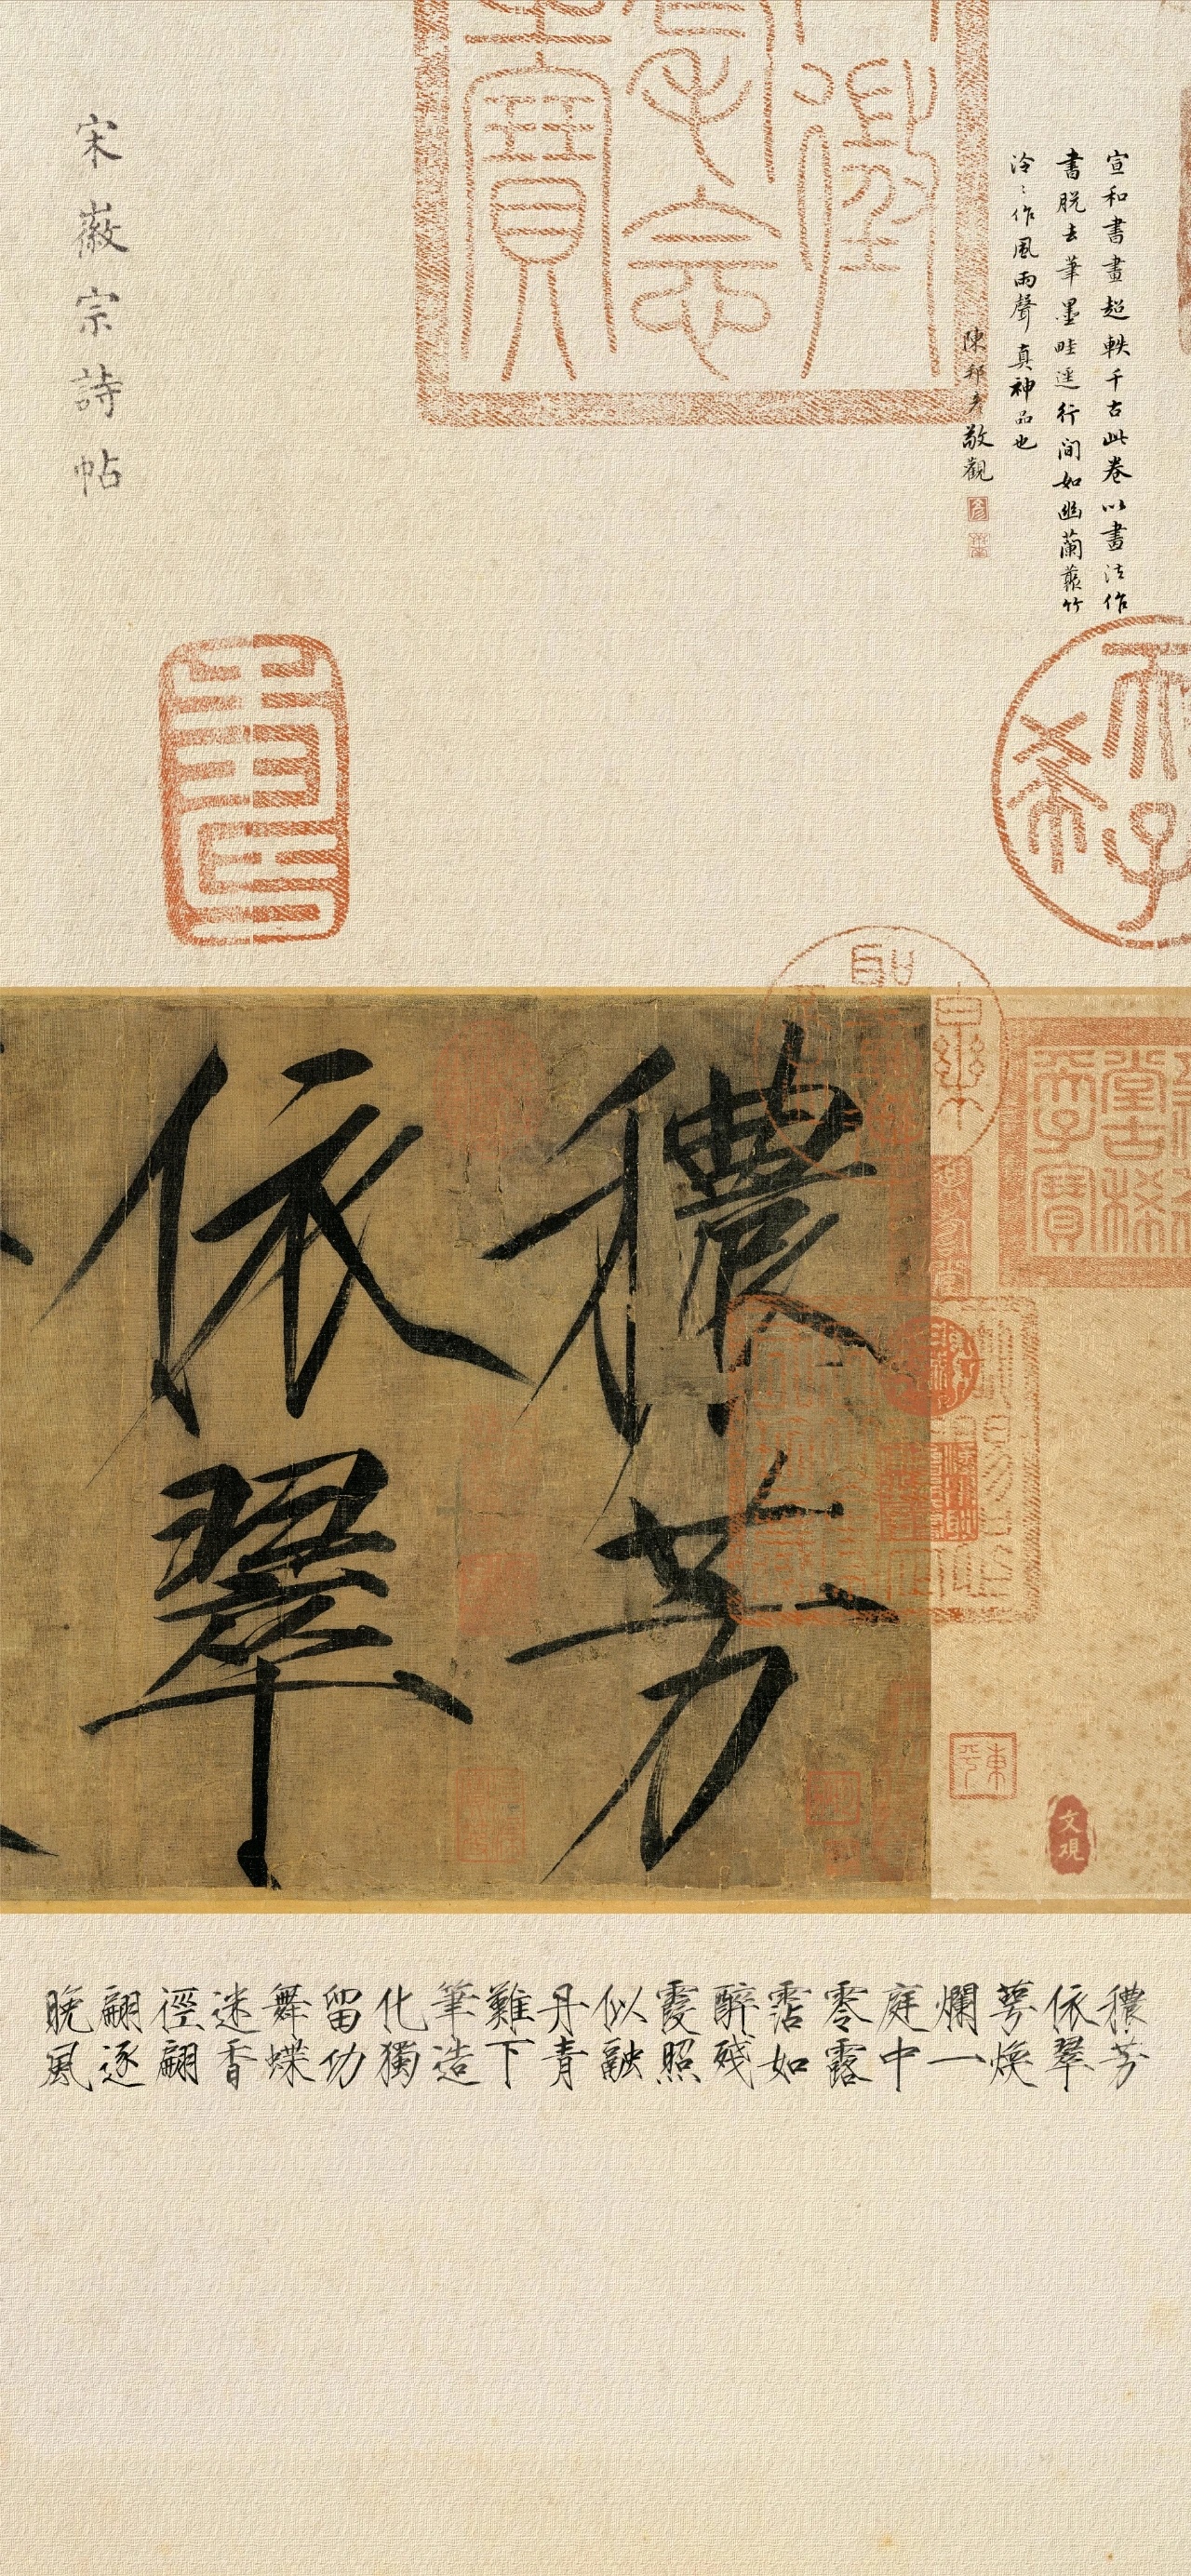 宋徽宗詩帖
宣和書畫超軼千古此卷以畫法作
書脫去筆墨畦逕行間如幽蘭叢竹
泠〻作風雨聲真神品也
陳邦彥敬觀
天子
希
穠芳
依翠
東平
文观
穠芳
依翠
萼煥
爛一
庭中
零露
霑如
醉殘
霞照
似融
丹青
難下
筆造
化獨
留功
舞蝶
迷香
徑翩
翩逐
晚風